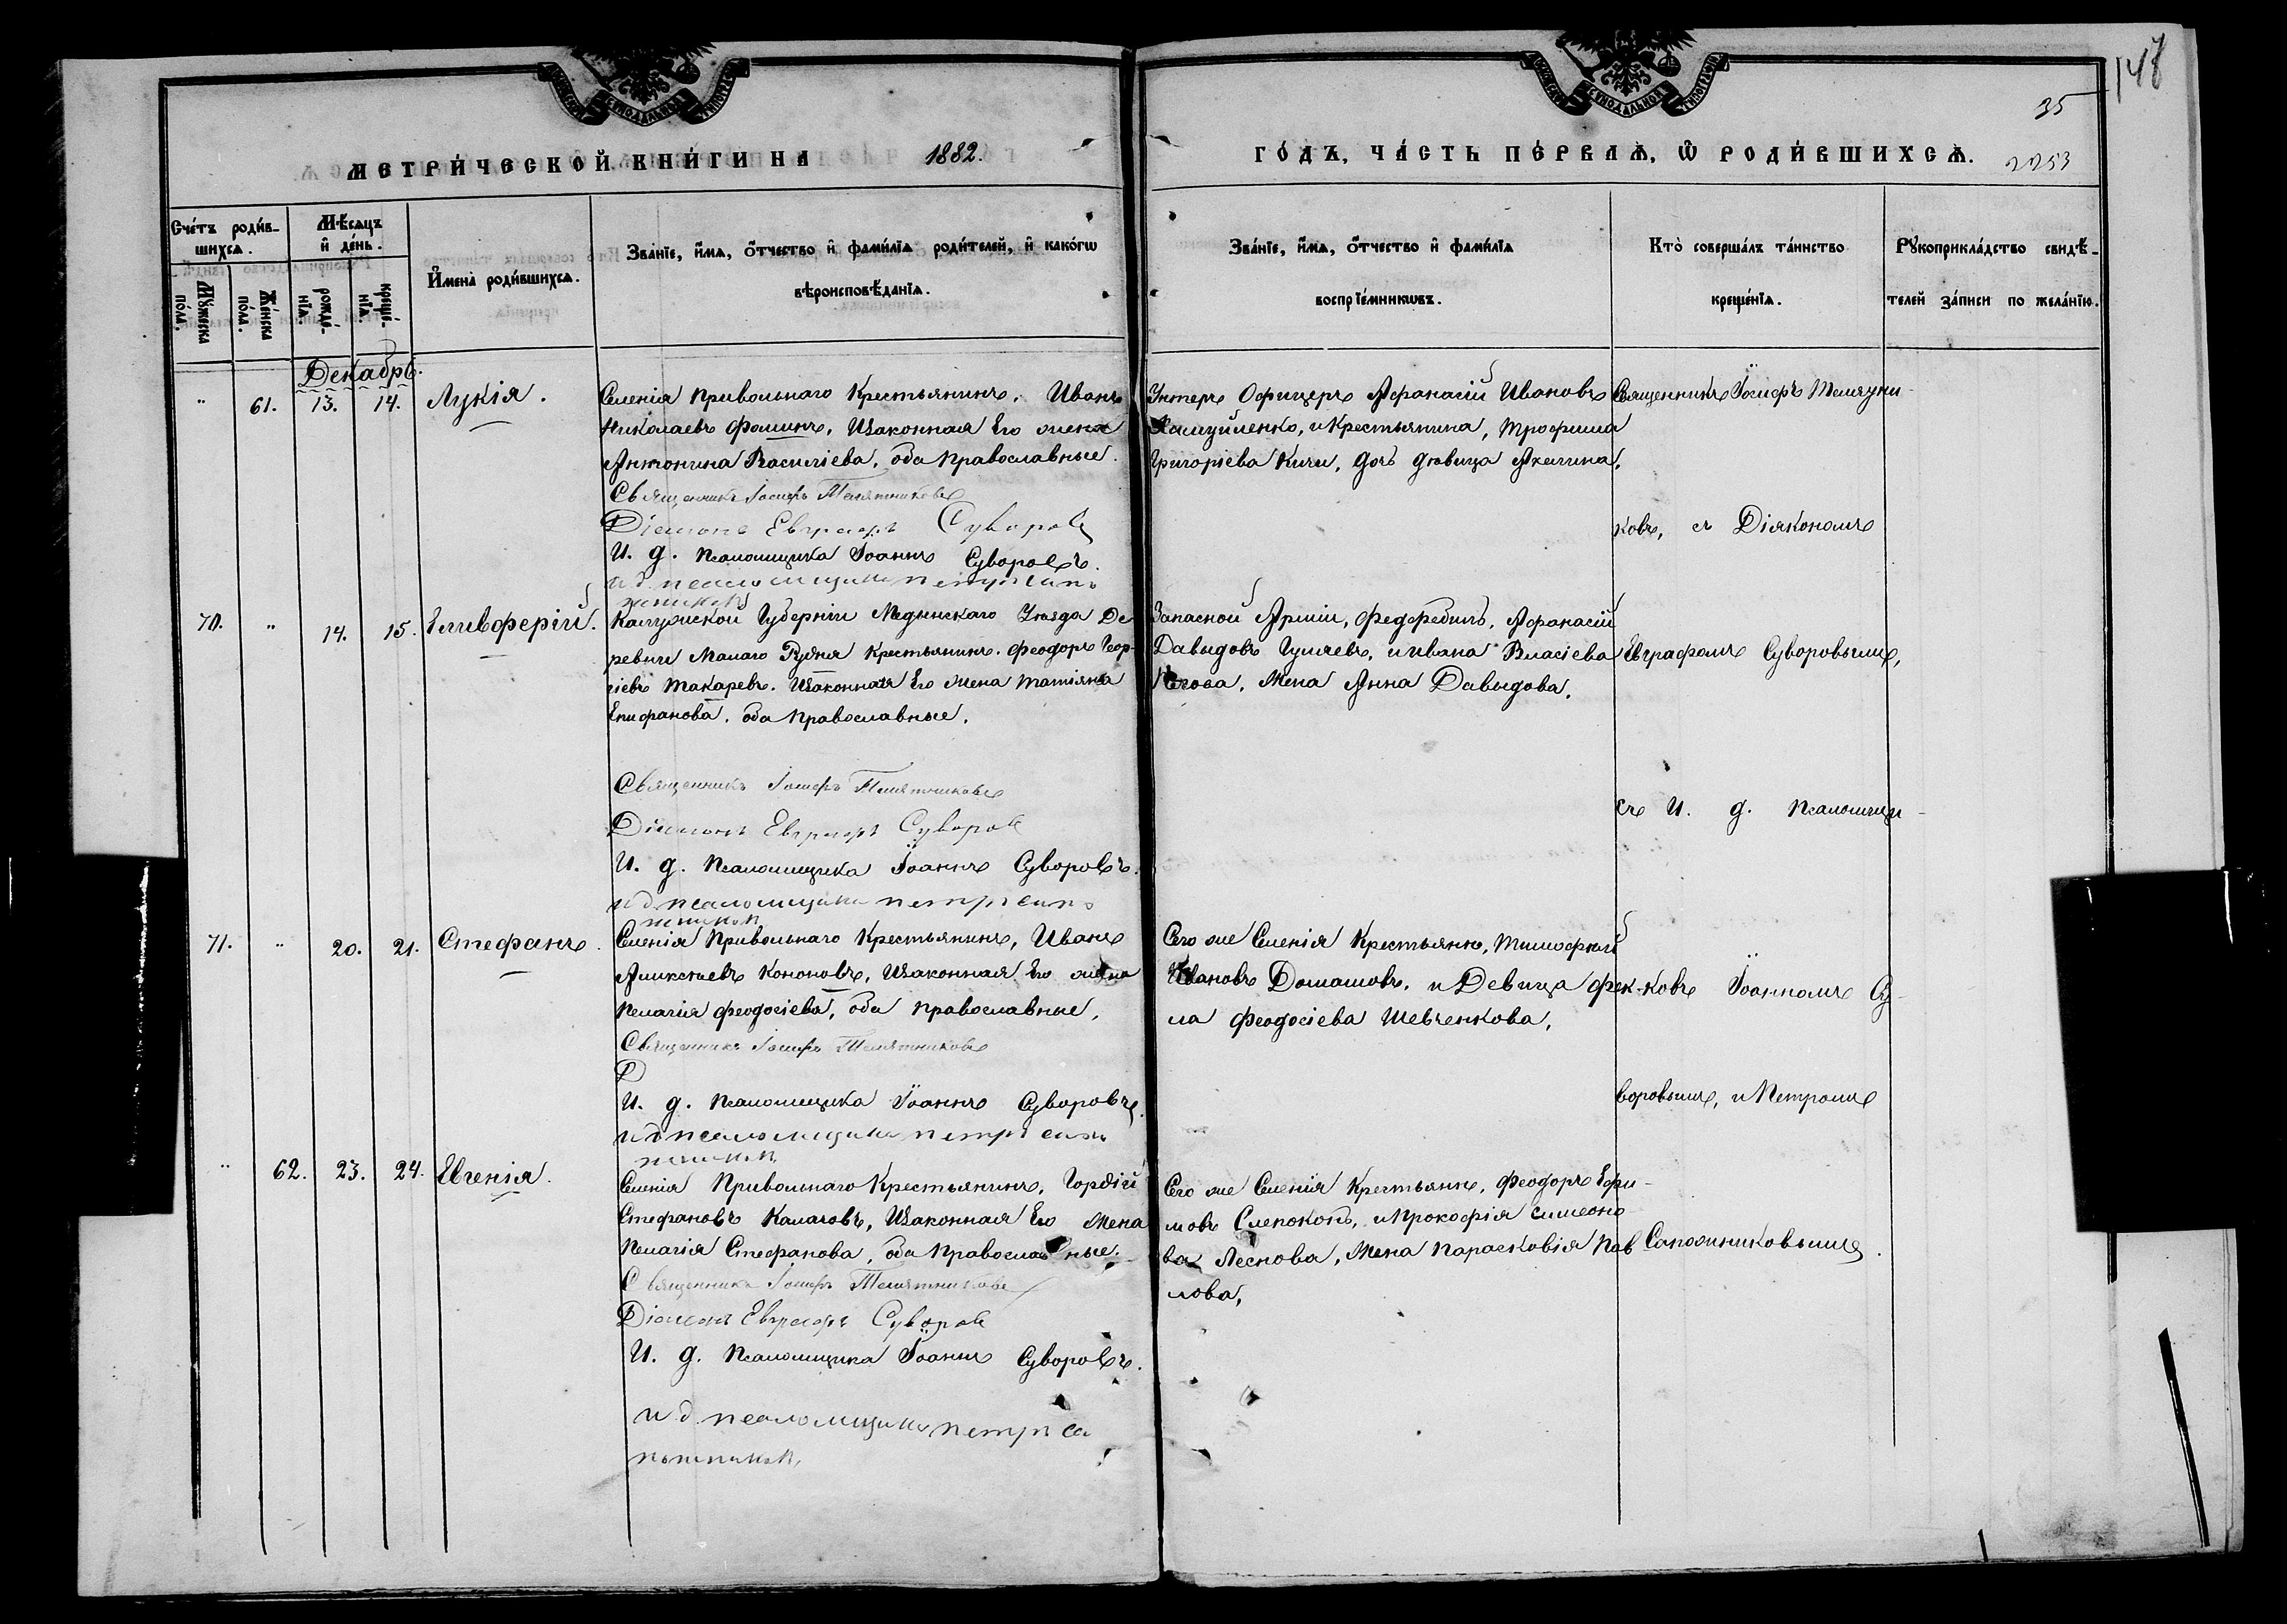 148
35
МЕТРИ́ЧЕСКОЙ КНИ́ГИ НА 1882.
ГО́ДЪ, ЧА́СТЬ ПЕ́РВАѦ, Ѿ РОДИ́ВШИХСѦ.
2253
Сче́тъ роди́в-
шихсѧ.
Мѣ́сѧцъ
и҆ де́нь.
И҆мена̀ роди́вшихсѧ.
Зва́нїе, и҆́мѧ, о҆́тчество и҆ фами́лїѧ роди́телей, и҆ како́гѡ
вѣроисповѣ́данїѧ.
Зва́нїе, и҆́мѧ, о҆́тчество и҆ фами́лїѧ
воспрїе́мникѡвъ.
Кто̀ соверша́лъ та́инство
креще́нїѧ.
Рꙋкоприкла́дство свидѣ́-
телей за́писи по жела́нїю.
Мꙋ́жеска
по́ла.
Же́нска
по́ла.
рожде́-
нїѧ.
креще́-
нїѧ.
Декабрь.
" 61. 13. 14. Лукія.
Селенія Привольнаго Крестьянинъ, Иванъ
Николаевъ Фоминъ, Изаконная Его жена
Антонина Василіева, оба Православные.
Священникъ Іосифъ Телятниковъ
Діаконъ Евграфъ Суворовъ
И. д. Псаломщика Іоаннъ Суворовъ.
и д псаломщика петръ сапо
жниковъ
Унтеръ Офицеръ Афанасій Ивановъ
и Крестьянина, Трофима
Григоріева Кичи, дочь дѣвица Акилина.
Священникъ Іосифъ Телятни-
ковъ, съ Діякономъ
70. " 14. 15. Еливферій.
Калужской Губерніи Медынскаго Уѣзда Де
ревни Малаго Рудня Крестьянинъ Феодоръ Геор-
гіевъ Макаревъ. Изаконная Его Жена Татіяна
Епифанова. оба Православные.
Священникъ Іосифъ Телятниковъ
Діаконъ Евграфъ Суворовъ
И. д. Псаломщика Іоаннъ Суворовъ.
и д псаломщика петръ сапо
жниковъ
Запасной Арміи, Афанасій
Давыдовъ и Ивана Власіева
Жена Анна Давыдова.
Евграфомъ Суворовымъ,
съ И. д. Псаломщи-
71. " 20. 21. Стефанъ.
Селенія Привольнаго Крестьянинъ, Иванъ
Аликсѣевъ Кононовъ, Изаконная Его жена
Пелагія Феодосіева, оба Православные,
Священникъ Іосифъ Телятниковъ
Д
И. д. Псаломщика Іоаннъ Суворовъ.
и д псаломщика петръ сапо
жниковъ
Сего же Селенія Крестьянъ, Тимофкій
Ивановъ Домашовъ, и Девица Фек-
ла Феодосіева Шевченкова,
ковъ Іоанномъ Су-
воровымъ, и Петромъ
" 62. 23. 24. Евгенія.
Селенія Привольнаго Крестьянинъ, Гордій
Стефановъ Калаговъ, Изаконная Его Жена
Пелагія Стефанова, оба Православные.
Священникъ Іосифъ Телятниковъ
Діаконъ Евграфъ Суворовъ
И. д. Псаломщика Іоаннъ Суворовъ.
и д псаломщика петръ са
пожниковъ
Сего же Селенія Крестьянъ, Феодоръ Ефи-
мовъ Слепоконь, и Прокофія Симеоно
ва Леснова, Жена Парасковія Пав
лова,
Сапожниковымъ.